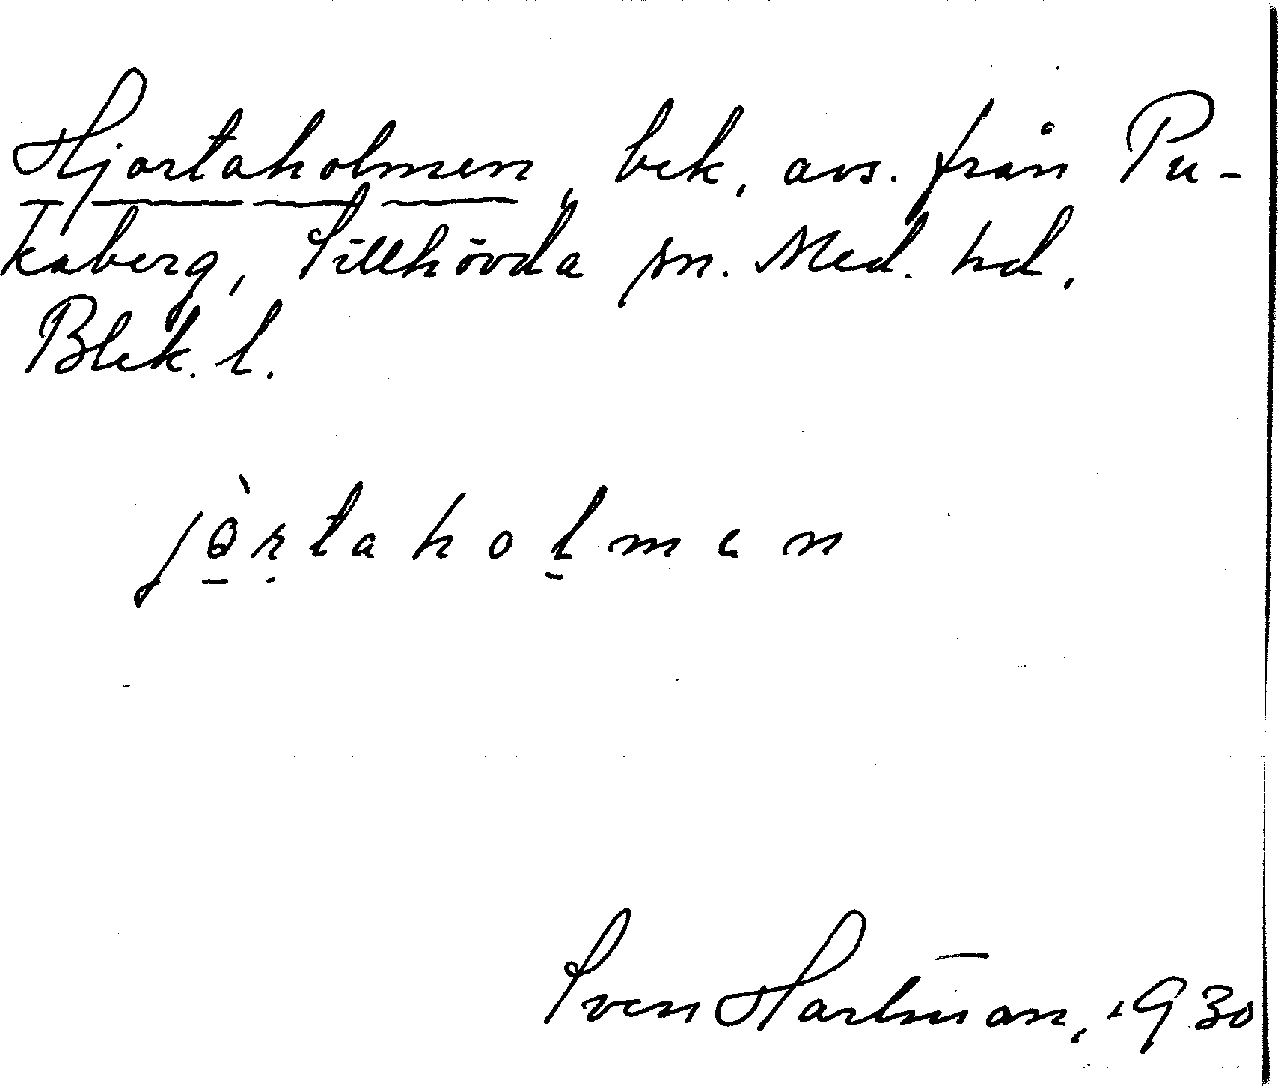 Hjortaholmen, bek. avs. från Pu-
kaberg, Sillhövda sn. Med. hd.
Blek. l.
jòrtaholmen
Sven Hartman, 1930